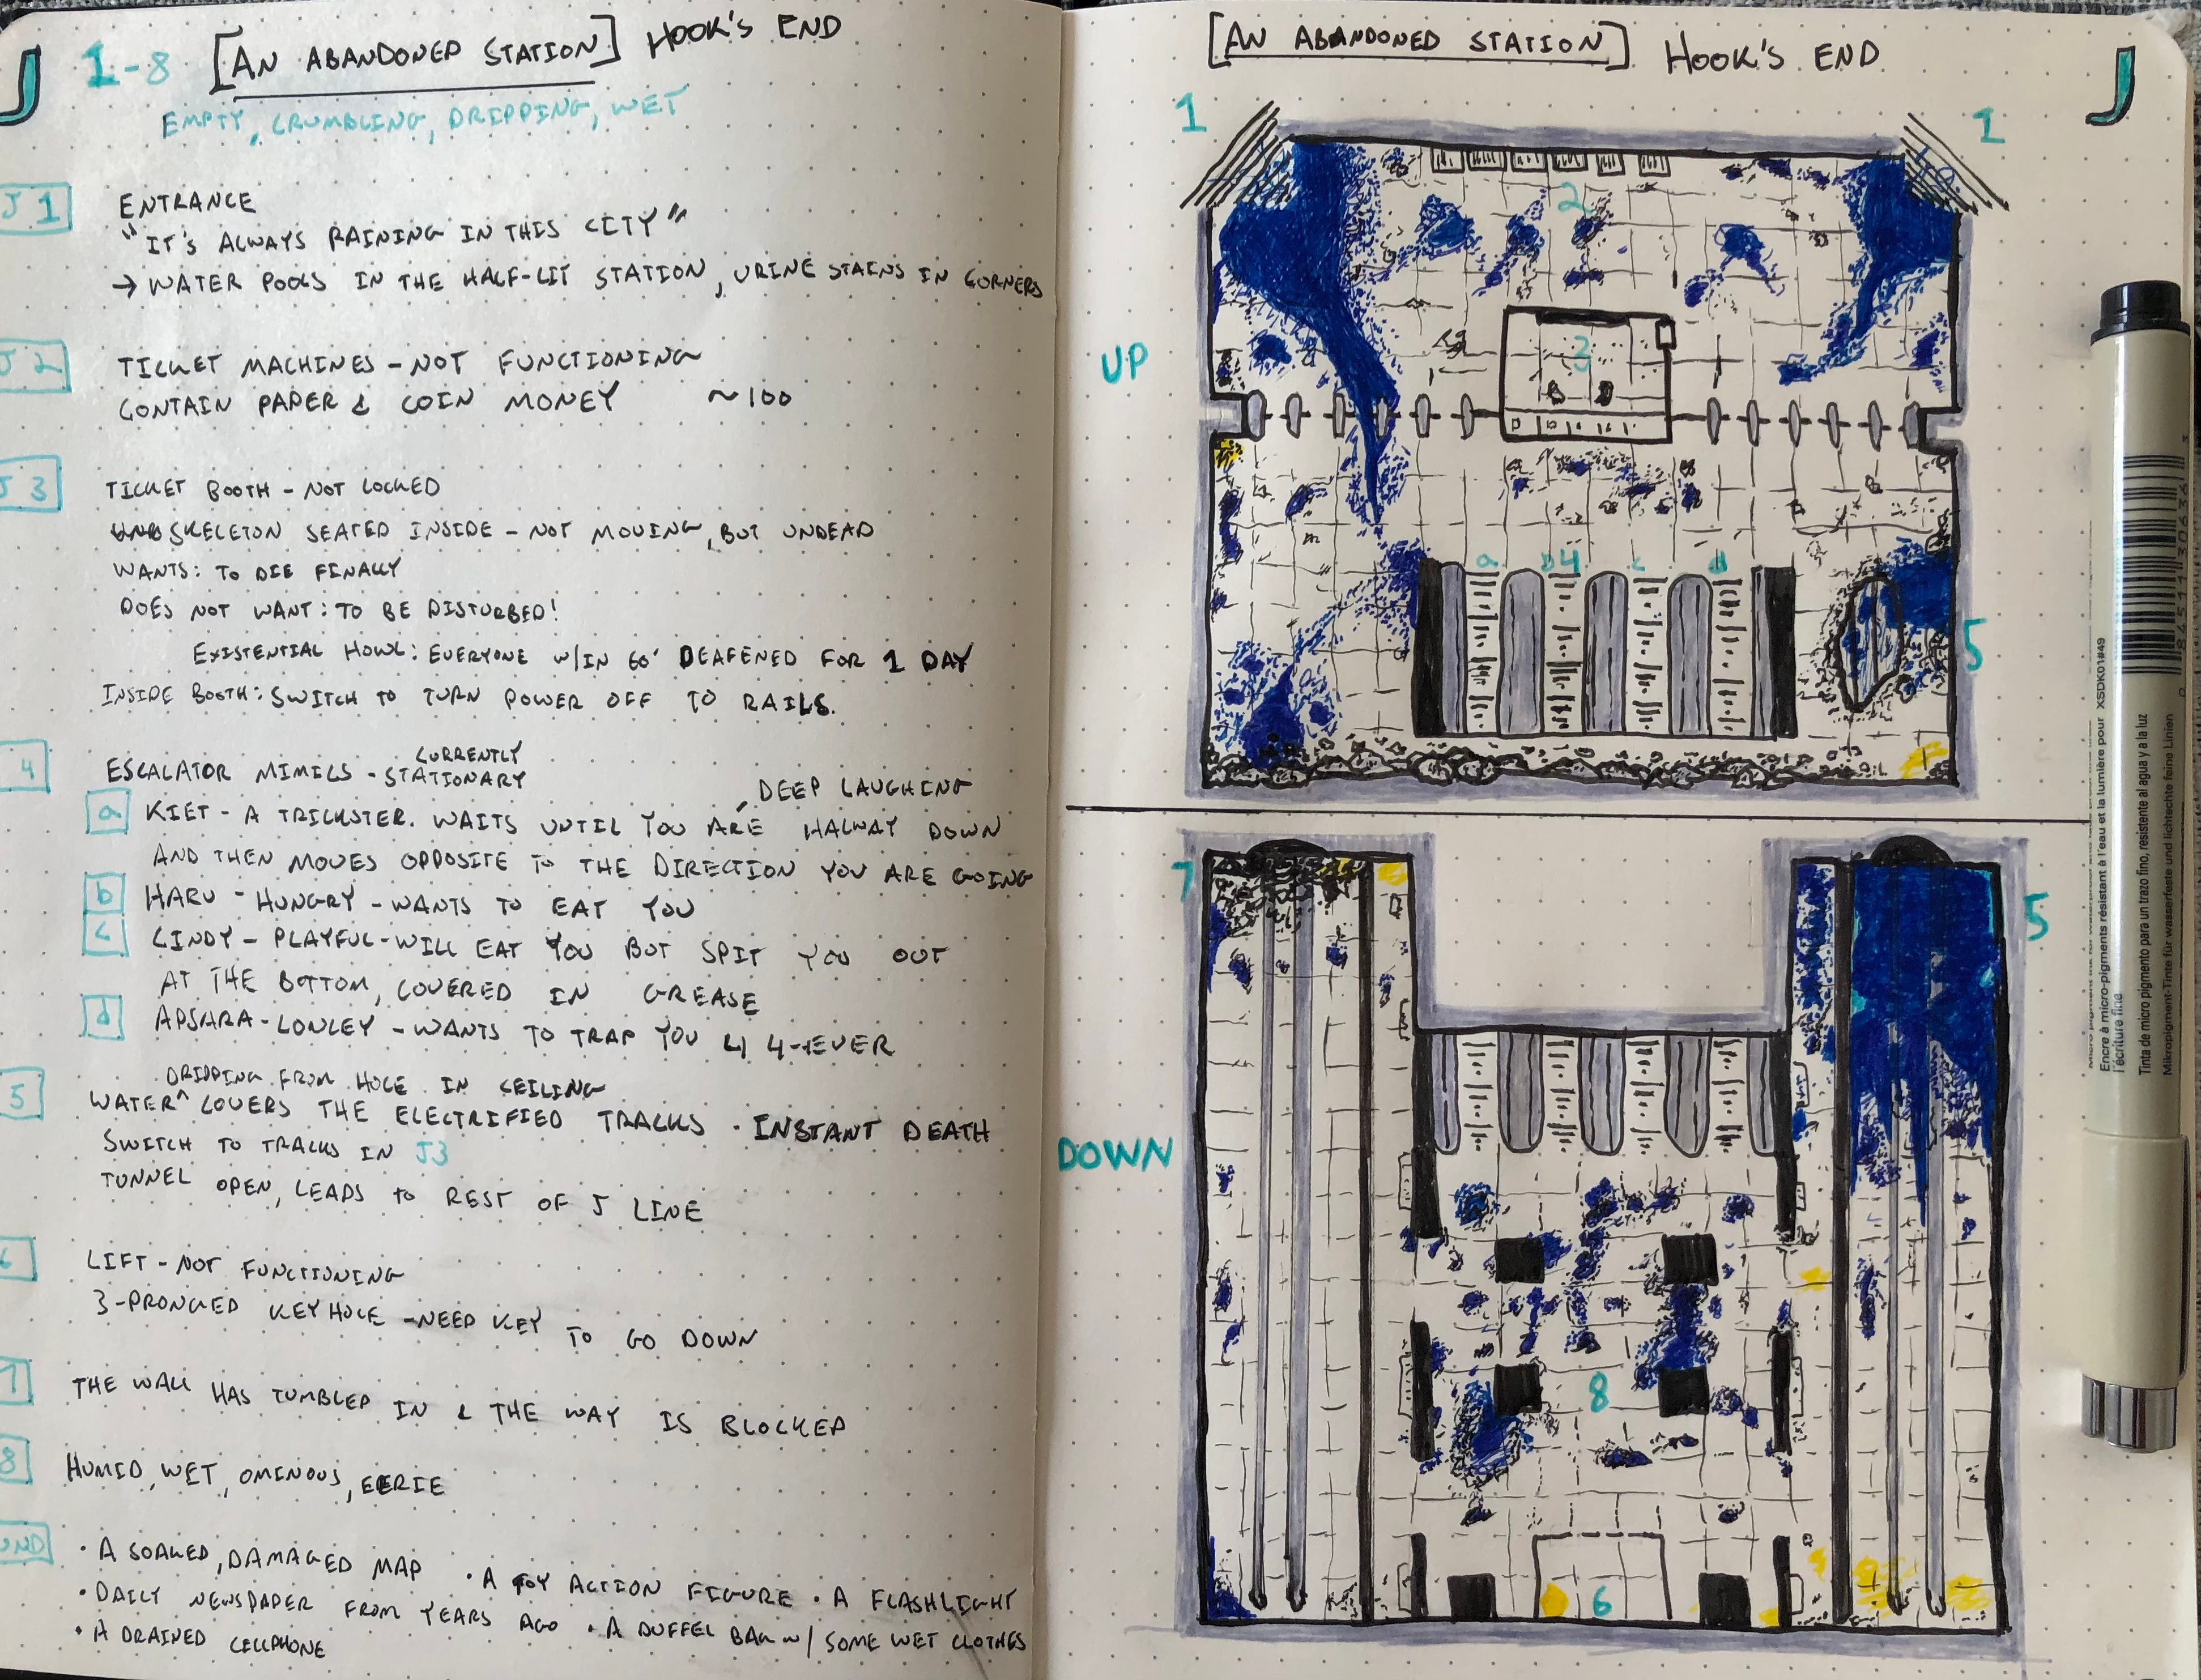 J 1-8 [AN ABANDONED STATION] HOOK'S END
EMPTY, CRUMBLING, DRIPPING, WET
J1
ENTRANCE
"IT'S ALWAYS RAINING IN THIS CITY"
→ WATER POOLS IN THE HALF-LIT STATION, URINE STAINS IN CORNERS
J2
TICKET MACHINES - NOT FUNCTIONING
CONTAIN PAPER & COIN MONEY ~100
J3
TICKET BOOTH - NOT LOCKED
SKELETON SEATED INSIDE - NOT MOVING, BUT UNDEAD
WANTS: TO DIE FINALLY
DOES NOT WANT: TO BE DISTURBED!
EXISTENTIAL HOWL: EVERYONE W/IN 60' DEAFENED FOR 1 DAY
INSIDE BOOTH: SWITCH TO TURN POWER OFF TO RAILS.
4
ESCALATOR MIMICS - CURRENTLY STATIONARY
a KIET - A TRICKSTER. WAITS UNTIL YOU ARE HALWAY DOWN
DEEP LAUGHING
AND THEN MOVES OPPOSITE TO THE DIRECTION YOU ARE GOING
b HARU - HUNGRY - WANTS TO EAT YOU
c CINDY - PLAYFUL - WILL EAT YOU BUT SPIT YOU OUT
AT THE BOTTOM, COVERED IN GREASE
d APSARA - LONLEY - WANTS TO TRAP YOU 4 4-EVER
5
DRIPPING FROM HOLE IN CEILING
WATER^ COVERS THE ELECTRIFIED TRACKS · INSTANT DEATH
SWITCH TO TRACKS IN J3
TUNNEL OPEN, LEADS TO REST OF J LINE
6
LIFT - NOT FUNCTIONING
3-PRONGED KEYHOLE - NEED KEY TO GO DOWN
7
THE WALL HAS TUMBLED IN & THE WAY IS BLOCKED
8
HUMID, WET, OMINOUS, EERIE
· A SOAKED, DAMAGED MAP · A TOY ACTION FIGURE · A FLASHLIGHT
· DAILY NEWSPAPER FROM YEARS AGO · A DUFFEL BAG W/ SOME WET CLOTHES
· A DRAINED CELLPHONE
[AN ABANDONED STATION] HOOK'S END J
1
1
2
UP
3
a
b4
c
d
5
7
5
DOWN
8
6
XSDK01#49
Encre à micro-pigments résistant à l'eau et la lumière pour
l'écriture fine
Tinta de micro pigmento para un trazo fino, resistente al agua y a la luz
Mikropigment-Tinte für wasserfeste und lichtechte feine Linien